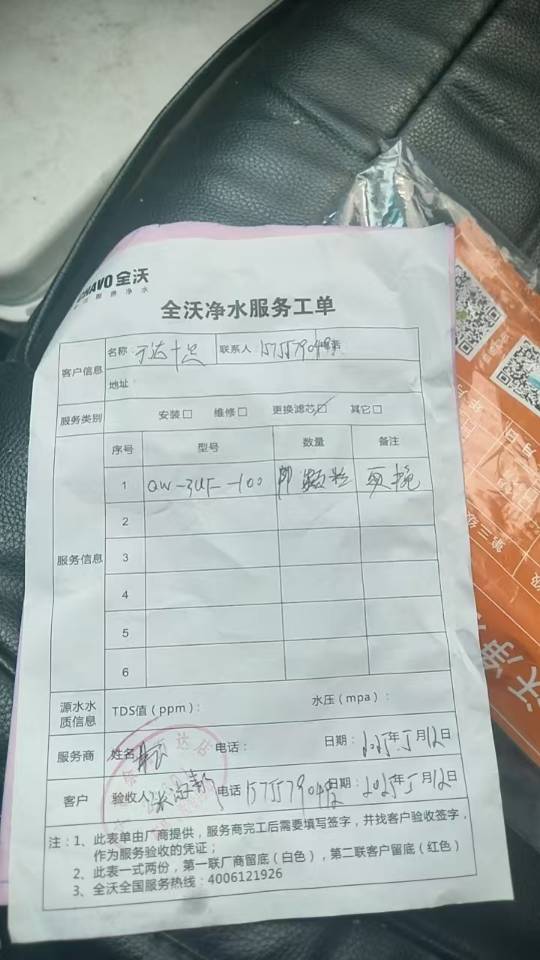 全沃
全沃净水服务工单
客户信息
名称
联系人
地址
服务类别
安装□ 维修□ 更换滤芯☑ 其它□
服务信息
序号 型号 数量 备注
1 QW-3UF-100 颗粒 更换
2
3
4
5
6
源水水质信息
TDS值（ppm）： 水压（mpa）：
服务商
姓名 电话： 日期：2025年5月12日
客户
验收人 电话 日期：2025年5月12日
注：1、此表单由厂商提供，服务商完工后需要填写签字，并找客户验收签字，
作为服务验收的凭证；
2、此表一式两份，第一联厂商留底（白色），第二联客户留底（红色）
3、全沃全国服务热线：4006121926
第三级